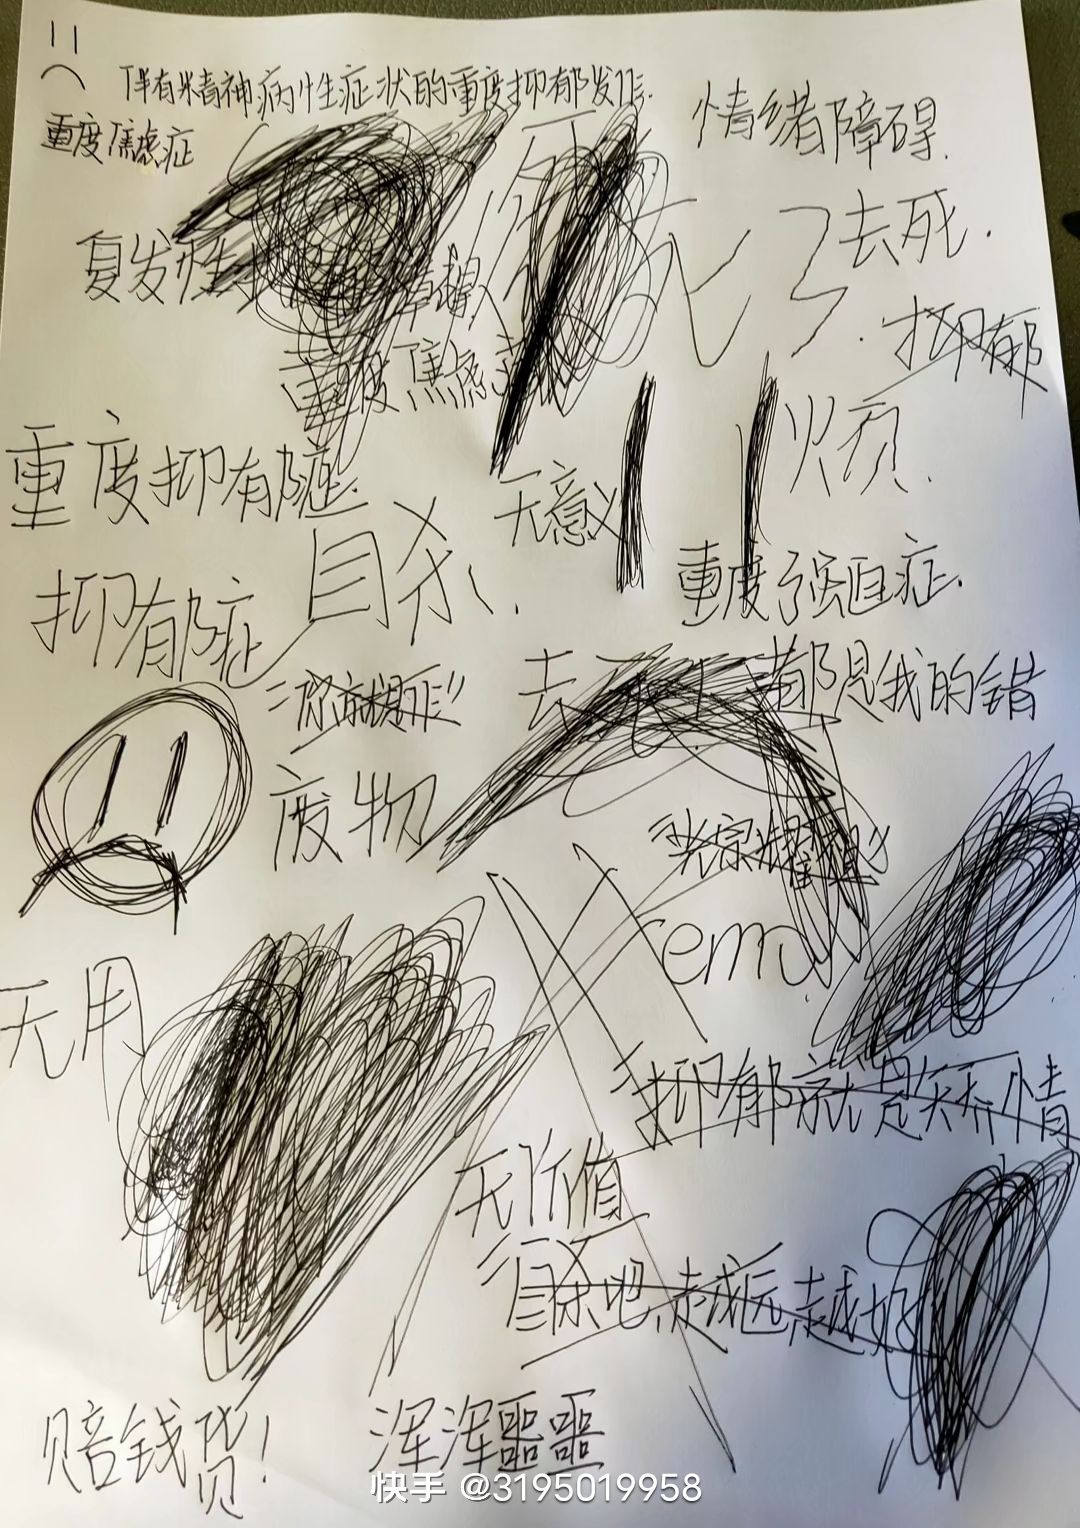 伴有精神病性症状的重度抑郁发作.
情绪障碍.
重度焦虑症
复发性
死了
去死.
抑郁
重度焦虑
烦.
重度抑郁症.
无意义
自杀.
重度强迫症.
抑郁症
去死
都是我的错
废物
"光宗耀祖"
emo
无用
"抑郁就是矫情
无价值
"自杀吧,越远越好
赔钱货!
浑浑噩噩
快手 @3195019958